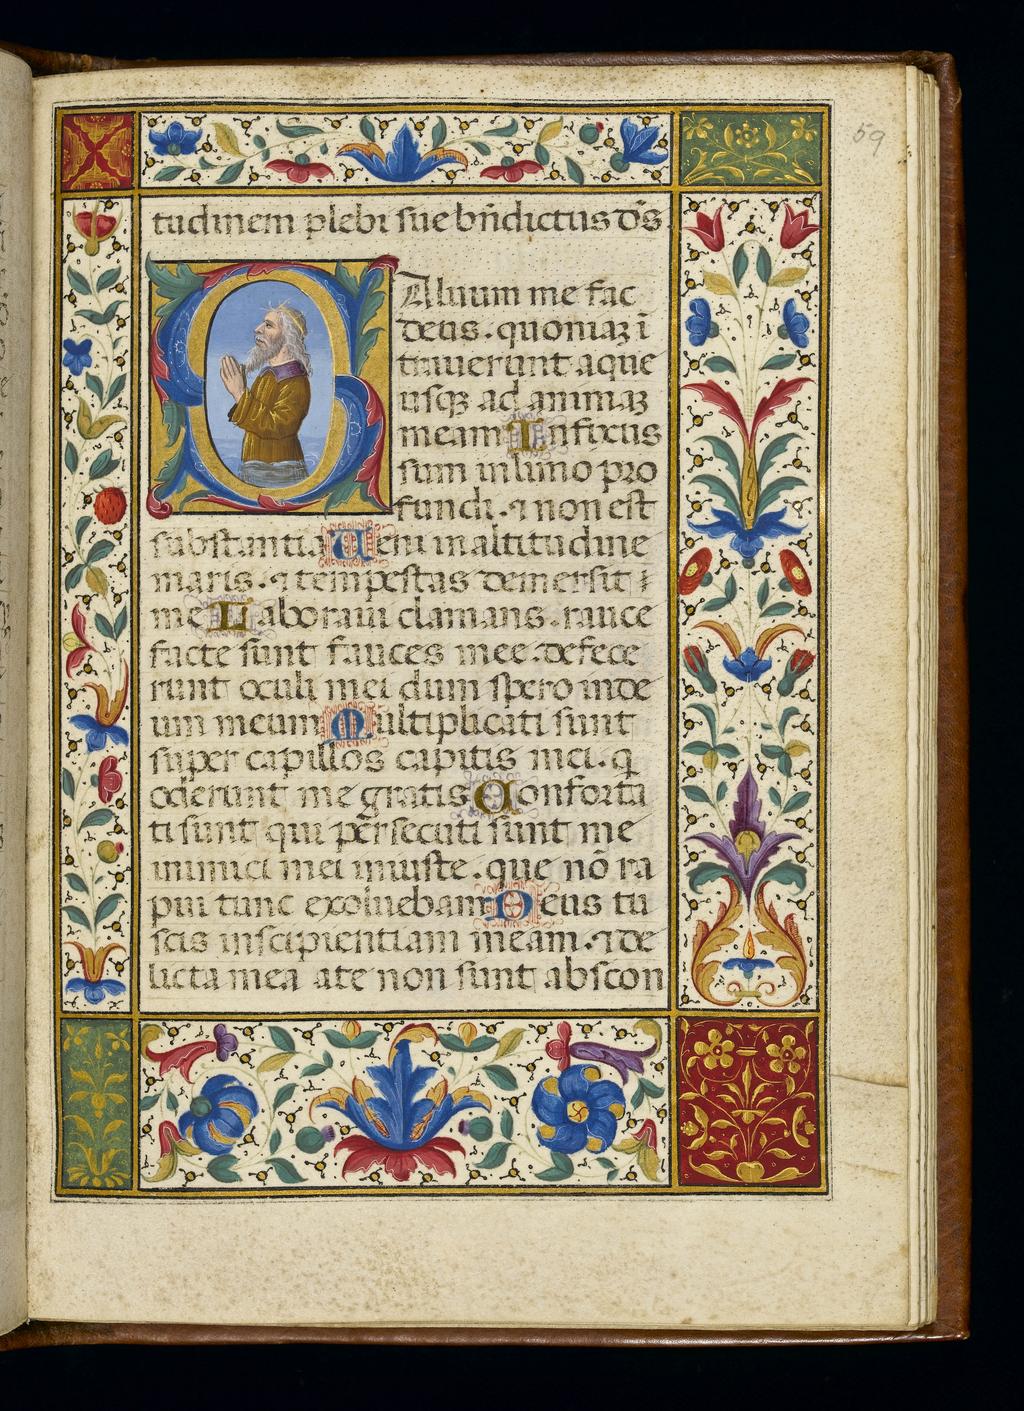 59
tudinem plebi sue bn̄dictus ds̄
Saluum me fac
deus . quoniaʒ ī
trauerunt aque
usqʒ ad animaʒ
meam Infixus
sum in limo pro
fundi . ⁊ non est
substantia Ueni in altitudine
maris . ⁊ tempestas demersit
me Laboraui clamans . rauce
facte sunt fauces mee . defece
runt oculi mei dum spero in de
um meum Multiplicati sunt
super capillos capitis mei . q̄
oderunt me gratis Conforta
ti sunt qui persecuti sunt me
inimici mei iniuste . que nō ra
pui tunc exoluebam Deus tu
scis inscipientiam meam . ⁊ de
licta mea a te non sunt abscon